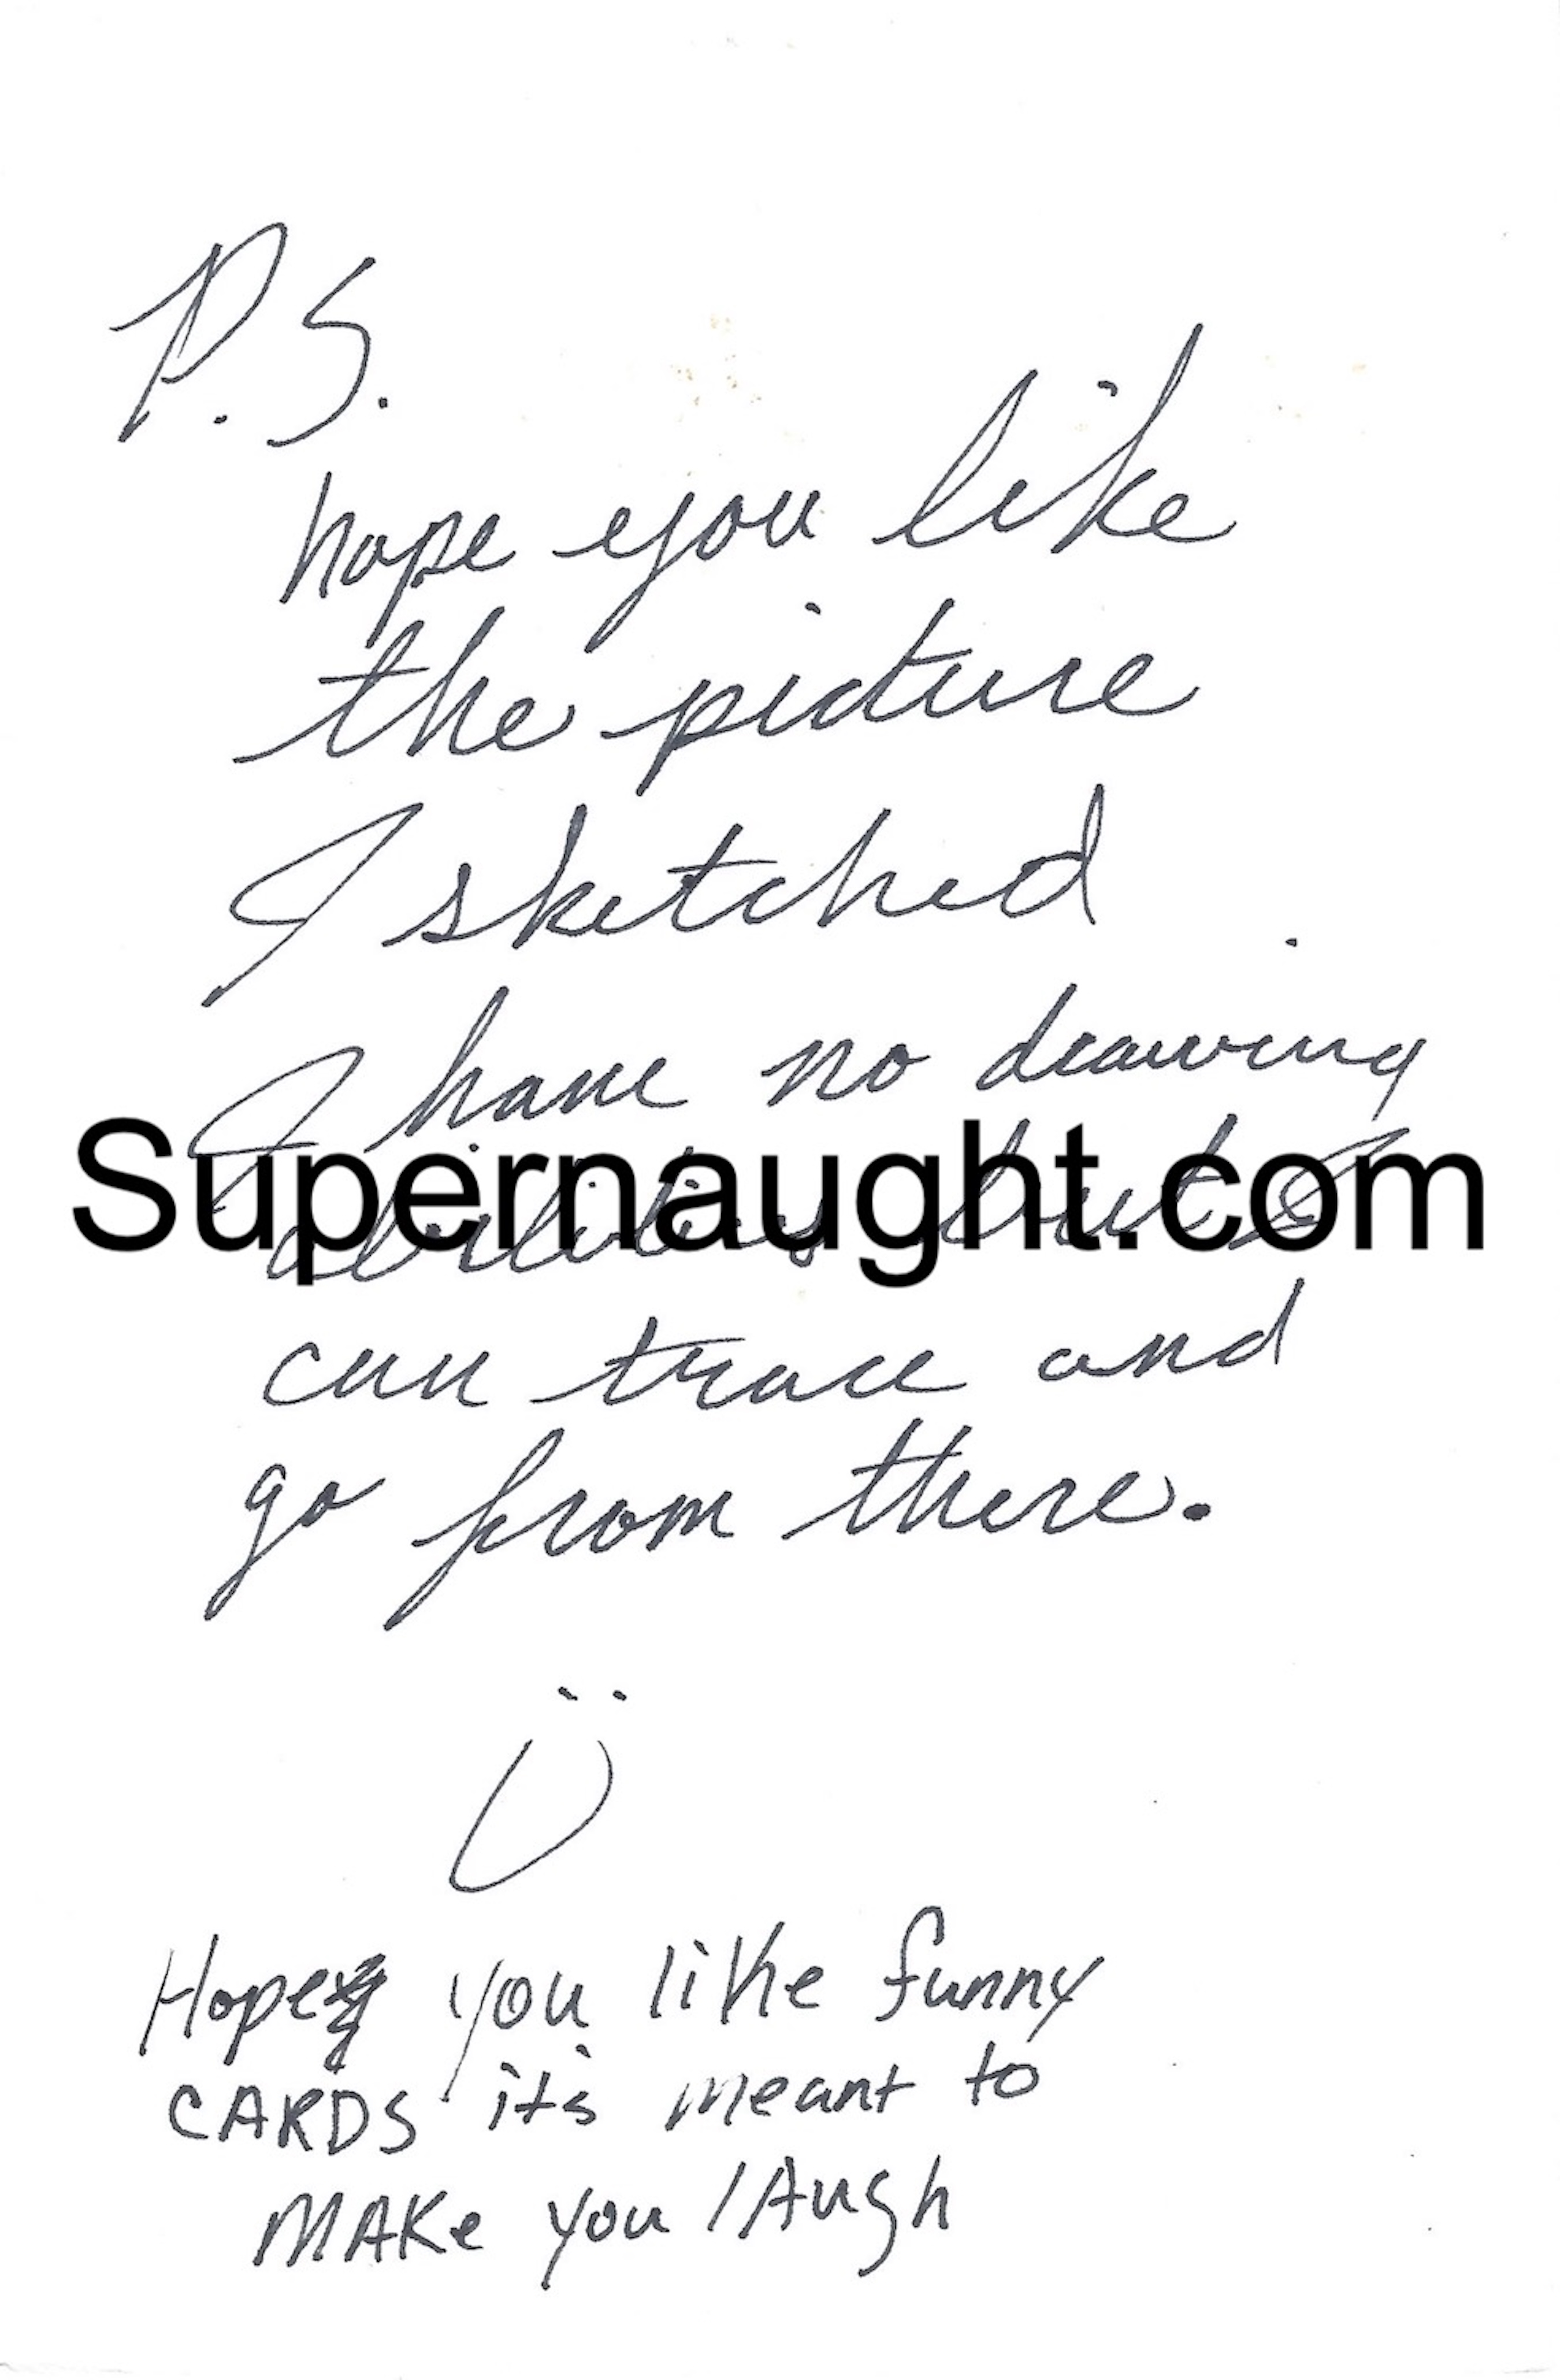 P.S.
hope you like
the picture
I sketched
I have no drawing
Supernaught.com
abilities but I
can trace and
go from there.
Hope you like funny
CARDS it's meant to
MAKe you lAugh